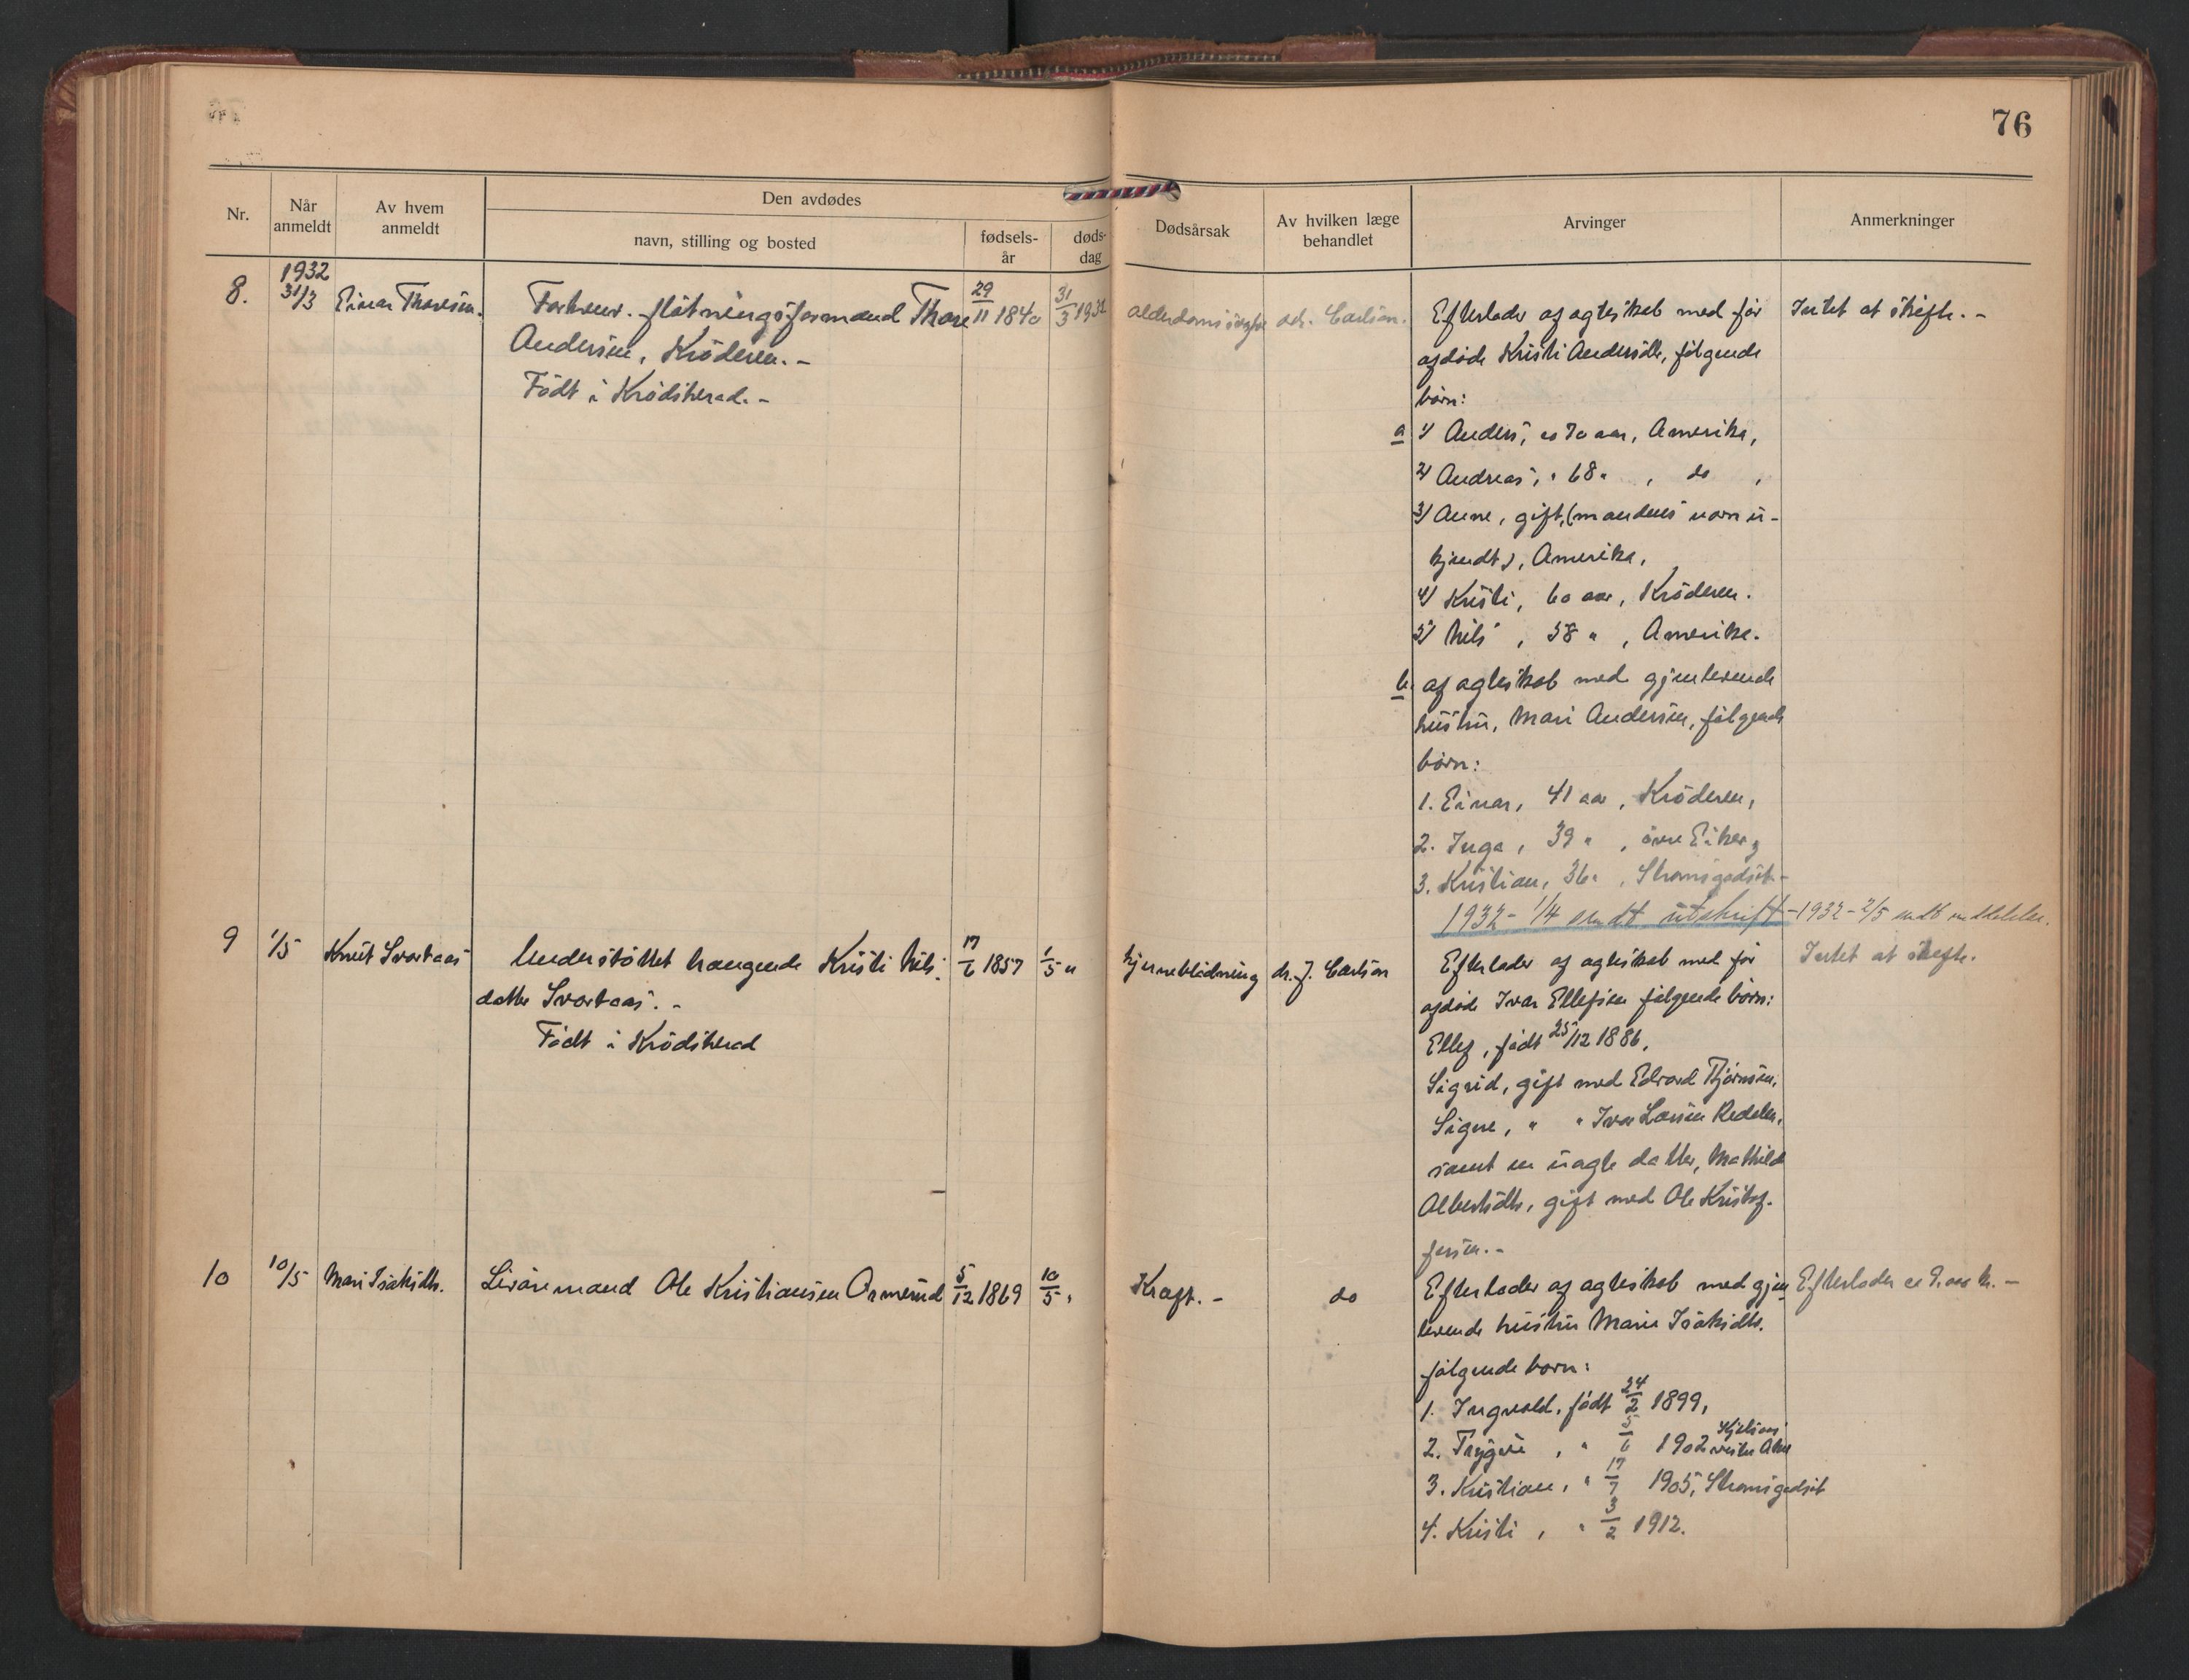 76
Nr.
Når anmeldt
Av hvem anmeldt
Den avdødes
navn, stilling og bosted
fødsels-år
døds-dag
Dødsårsak
Av hvilken læge behandlet
Arvinger
Anmerkninger
1932
8. 31/3 Einar Thoresen. Forhenv. fløtningsformand Thore 29/11 1840 31/3 1932
Andersen, Krøderen. -
Født i Krødsherad. -
alderdomssvaghet dr. Carlson.
Efterlader af ægteskab med før
afdøde Kristi Andersdtr, følgende
børn:
a 1) Anders, ca 70 aar, Amerika,
2) Andreas, " 68 " , do ,
3) Anne, gift, (mandens navn u-
kjendt), Amerika,
4) Kristi, 60 aar, Krøderen.
5) Nils , 58 " , Amerika.
b. af ægteskab med gjenlevende
hustru, Mari Andersen, følgende
børn:
1. Einar, 41 aar, Krøderen,
2. Inga, 39 " , øvre Eiker,
3. Kristian, 36 " , Strømsgodset -
1932 - 1/4 sendt utskrift -
Intet at skifte. -
1932 - 2/5 sendt meddelelse.
9 1/5 Knut Svartaas Understøttet trængende Kristi Nils- 17/6 1857 1/5 "
datter Svartaas. -
Født i Krødsherad
hjerneblødning dr. J. Carlson
Efterlader af ægteskab med før
afdøde Ivar Ellefsen følgende børn:
Ellef, født 25/12 1886.
Sigrid, gift med Edvard Bjørnsen,
Signe, " " Ivar Larsen Redalen,
samt en uægte datter, Mathilde
Albertsdtr, gift med Ole Kristof-
fersen. -
Intet at skifte.
10 10/5 Mari Isaksdtr. Livøremand Ole Kristiansen Ormerud 5/12 1869 10/5 "
Kræft. - do
Efterlader af ægteskab med gjen
levende hustru Marie Isaksdtr.
følgende børn:
1. Ingvald, født 24/2 1899,
2. Trygve , " 5/6 1902 vestre Aker
3. Kristian, " 17/7 1905, Strømsgodset
4. Kristi , " 3/2 1912.